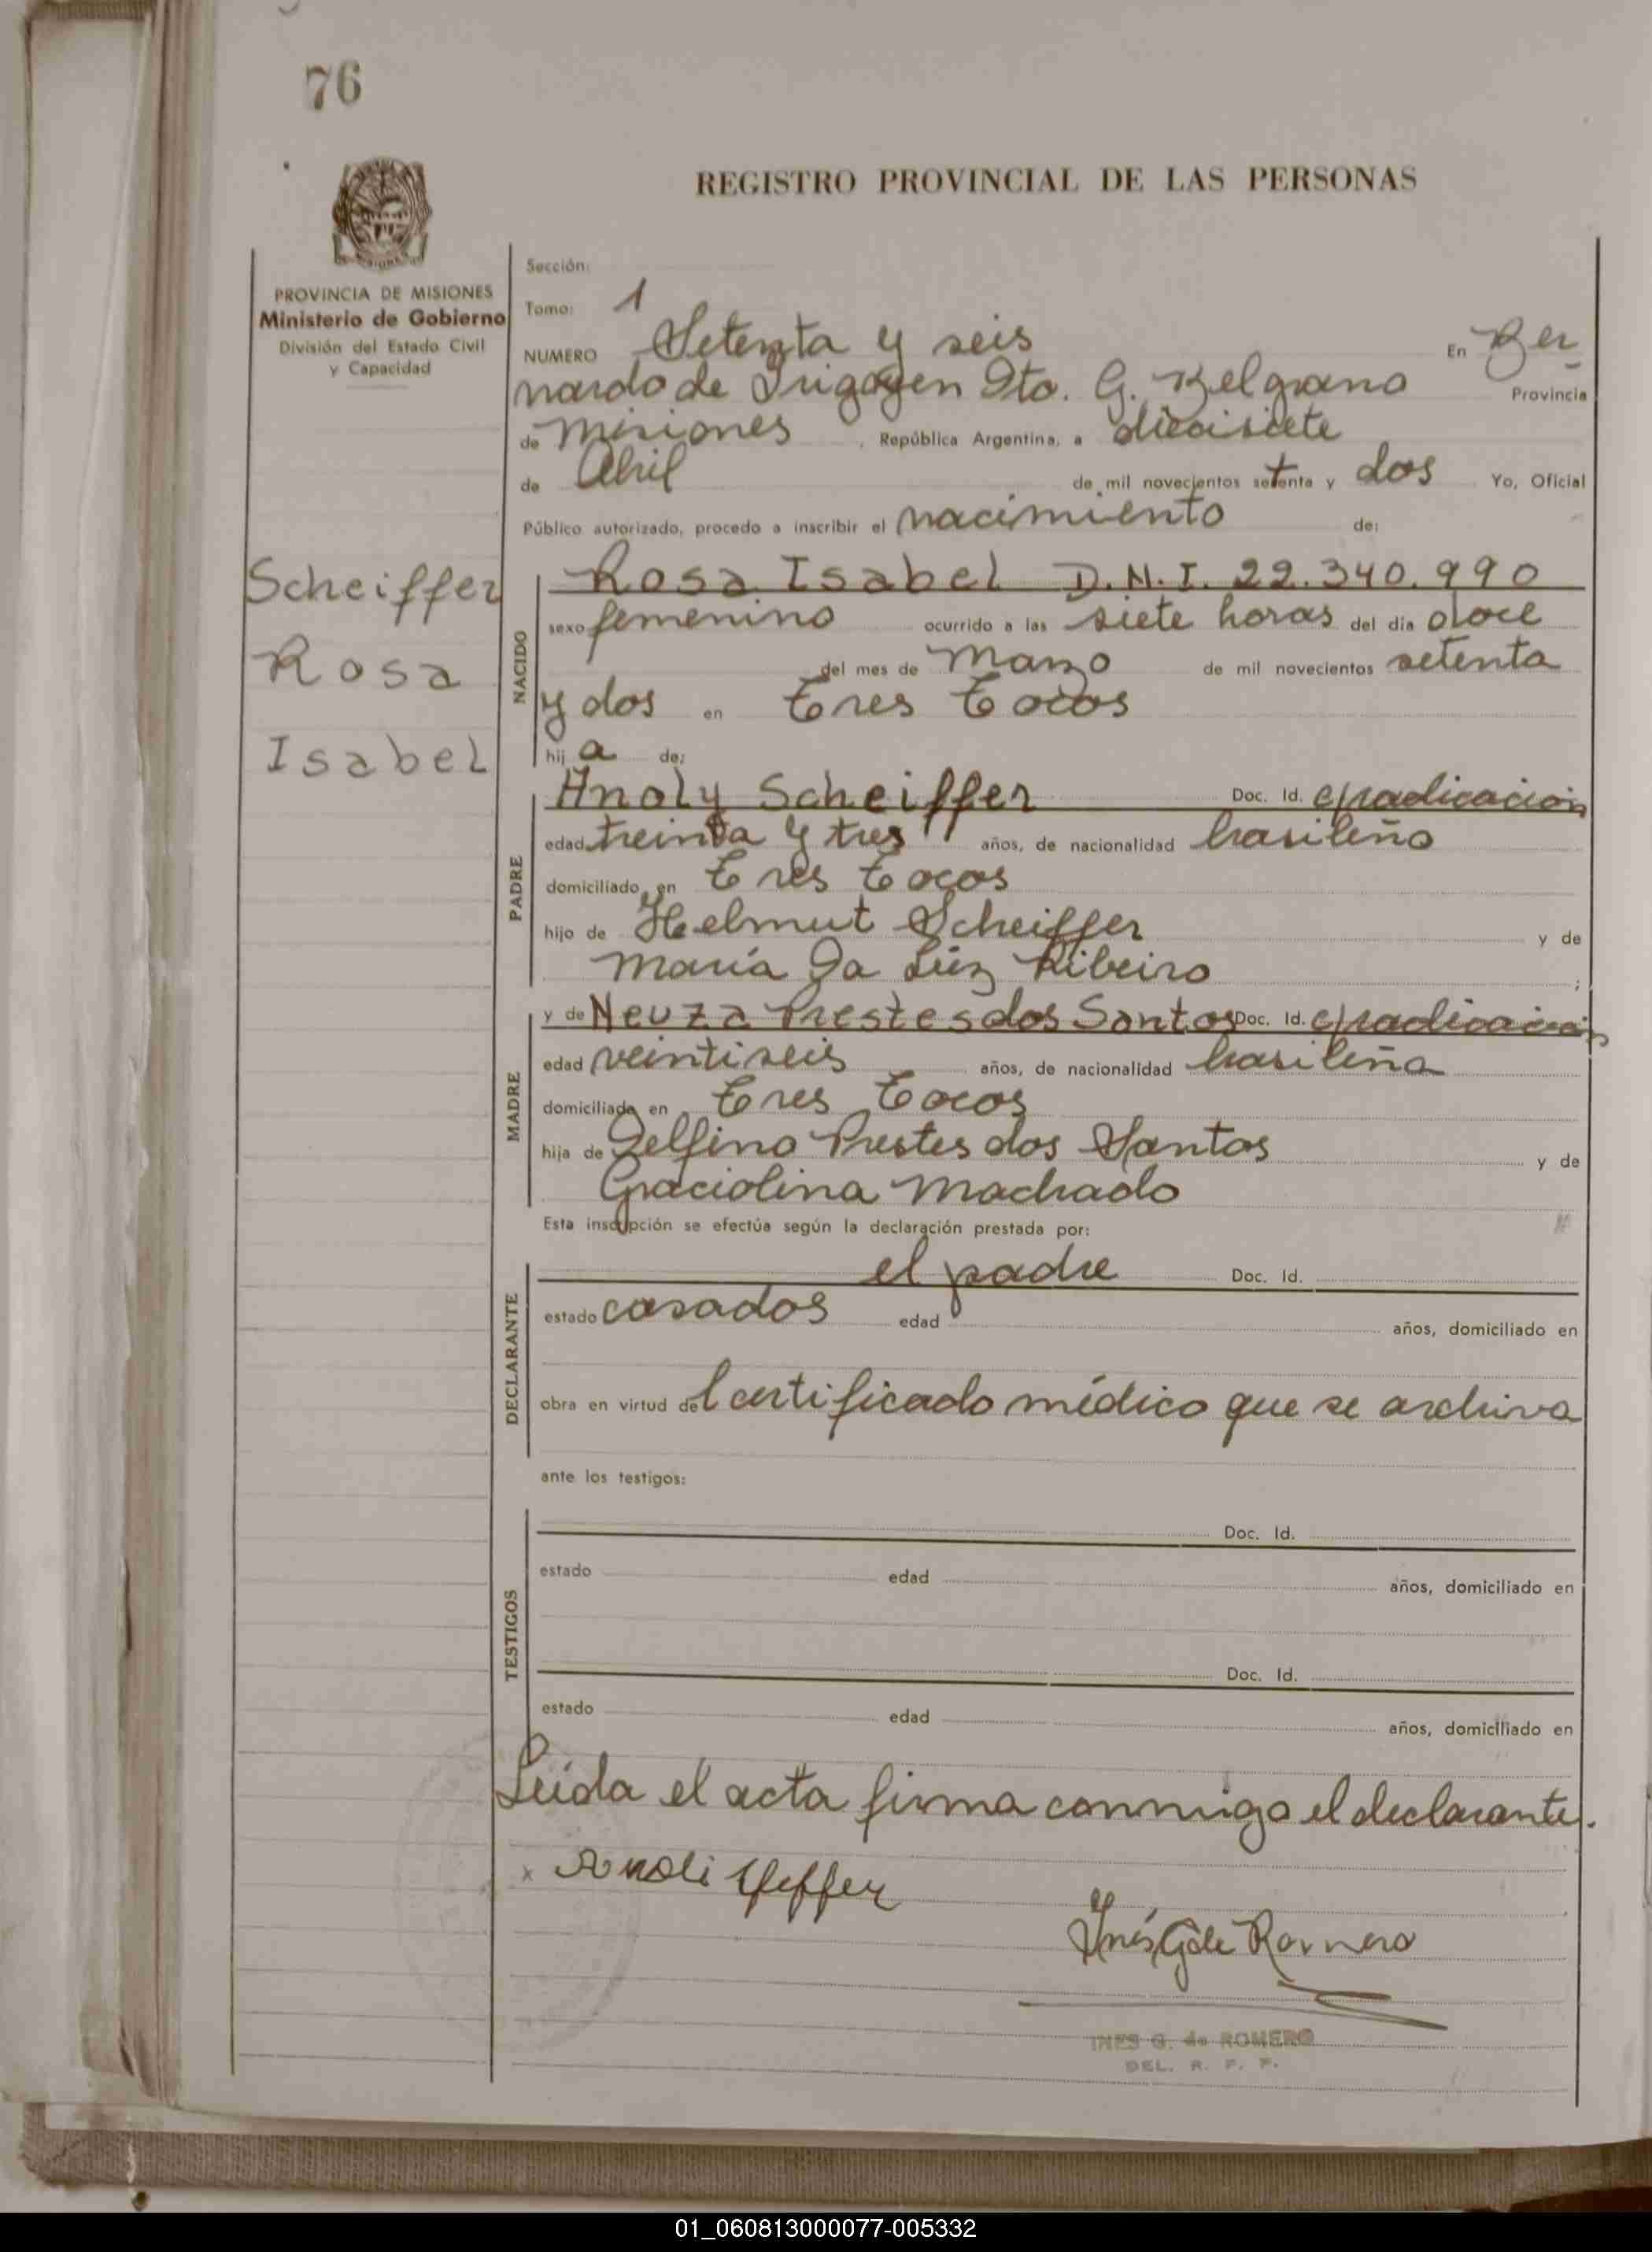 76
REGISTRO PROVINCIAL DE LAS PERSONAS
PROVINCIA DE MISIONES
Ministerio de Gobierno
División del Estado Civil
y Capacidad
Scheiffer
Rosa
Isabel
Sección:
Tomo: 1
NUMERO Setenta y seis En Ber
nardo de Irigoyen Dto. G. Belgrano Provincia
de Misiones, República Argentina, a diecisiete
de Abril de mil novecientos setenta y dos Yo, Oficial
Público autorizado, procedo a inscribir el nacimiento de:
NACIDO
Rosa Isabel D.N.I. 22.340.990
sexo femenino ocurrido a las siete horas del día doce
del mes de Marzo de mil novecientos setenta
y dos en Tres Tocos
hij a de:
PADRE
Anoly Scheiffer Doc. Id. c/radicación
edad treinta y tres años, de nacionalidad brasileño
domiciliado en Tres Tocos
hijo de Helmut Scheiffer y de
María Da Luz Ribeiro ;
MADRE
y de Neuza Prestes dos Santos Doc. Id. c/radicación
edad veintiseis años, de nacionalidad brasileña
domiciliada en Tres Tocos
hija de Delfino Prestes dos Santos y de
Graciolina Machado
Esta inscripción se efectúa según la declaración prestada por:
DECLARANTE
el padre Doc. Id.
estado casados edad años, domiciliado en
obra en virtud del certificado médico que se archiva
ante los testigos:
TESTIGOS
Doc. Id.
estado edad años, domiciliado en
Doc. Id.
estado edad años, domiciliado en
Leída el acta firma conmigo el declarante.
x Anoli
Inés G de Romero
INES G. de ROMERO
DEL. R. P. P.
01_060813000077-005332